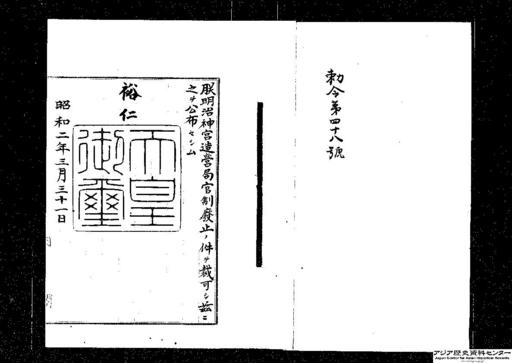 勅令第四十八號
朕明治神宮造營局官制廢止ノ件ヲ裁可シ茲ニ
之ヲ公布セシム
裕仁
天皇
御璽
昭和二年三月三十一日
アジア歴史資料センター
Japan Center for Asian Historical Records